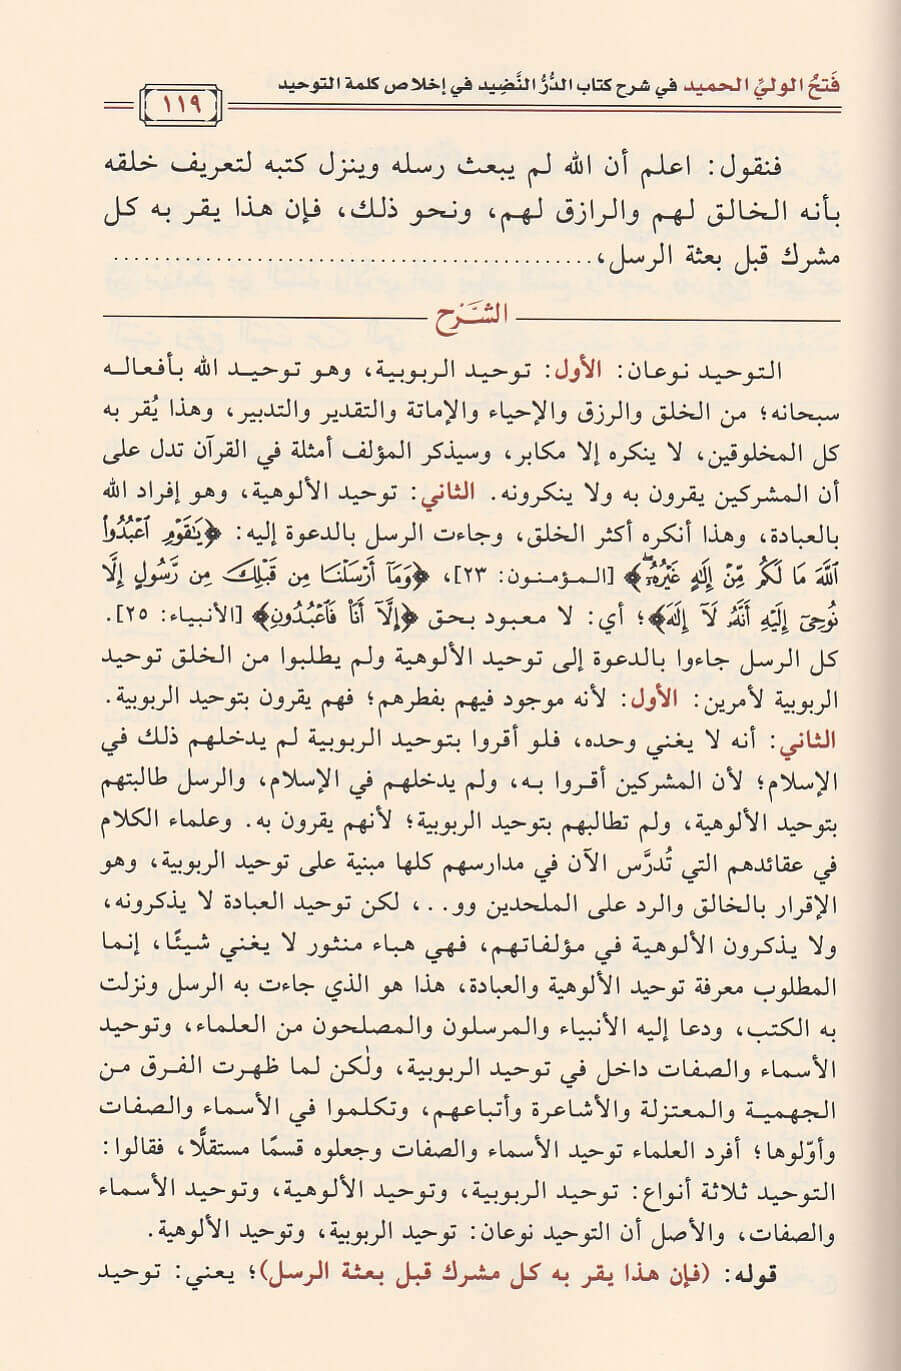 فَتحُ الوليِّ الحميد في شرح كتاب الدُّرُّ النَّضِيد في إخلاص كلمة التوحيد
١١٩
فنقول: اعلم أن الله لم يبعث رسله وينزل كتبه لتعريف خلقه
بأنه الخالق لهم والرازق لهم، ونحو ذلك، فإن هذا يقر به كل
مشرك قبل بعثة الرسل،..............................................
الشَّرح
التوحيد نوعان: الأول: توحيد الربوبية، وهو توحيد الله بأفعاله
سبحانه؛ من الخلق والرزق والإحياء والإماتة والتقدير والتدبير، وهذا يُقر به
كل المخلوقين، لا ينكره إلا مكابر، وسيذكر المؤلف أمثلة في القرآن تدل على
أن المشركين يقرون به ولا ينكرونه. الثاني: توحيد الألوهية، وهو إفراد الله
بالعبادة، وهذا أنكره أكثر الخلق، وجاءت الرسل بالدعوة إليه: ﴿يَٰقَوْمِ ٱعْبُدُوا۟
ٱللَّهَ مَا لَكُم مِّنْ إِلَٰهٍ غَيْرُهُۥٓ﴾ [المؤمنون: ٢٣]، ﴿وَمَآ أَرْسَلْنَا مِن قَبْلِكَ مِن رَّسُولٍ إِلَّا
نُوحِىٓ إِلَيْهِ أَنَّهُۥ لَآ إِلَٰهَ﴾؛ أي: لا معبود بحق ﴿إِلَّآ أَنَا۠ فَٱعْبُدُونِ﴾ [الأنبياء: ٢٥].
كل الرسل جاءوا بالدعوة إلى توحيد الألوهية ولم يطلبوا من الخلق توحيد
الربوبية لأمرين: الأول: لأنه موجود فيهم بفطرهم؛ فهم يقرون بتوحيد الربوبية.
الثاني: أنه لا يغني وحده، فلو أقروا بتوحيد الربوبية لم يدخلهم ذلك في
الإسلام؛ لأن المشركين أقروا به، ولم يدخلهم في الإسلام، والرسل طالبتهم
بتوحيد الألوهية، ولم تطالبهم بتوحيد الربوبية؛ لأنهم يقرون به. وعلماء الكلام
في عقائدهم التي تُدرَّس الآن في مدارسهم كلها مبنية على توحيد الربوبية، وهو
الإقرار بالخالق والرد على الملحدين وو..، لكن توحيد العبادة لا يذكرونه،
ولا يذكرون الألوهية في مؤلفاتهم، فهي هباء منثور لا يغني شيئًا، إنما
المطلوب معرفة توحيد الألوهية والعبادة، هذا هو الذي جاءت به الرسل ونزلت
به الكتب، ودعا إليه الأنبياء والمرسلون والمصلحون من العلماء، وتوحيد
الأسماء والصفات داخل في توحيد الربوبية، ولٰكن لما ظهرت الفرق من
الجهمية والمعتزلة والأشاعرة وأتباعهم، وتكلموا في الأسماء والصفات
وأوّلوها؛ أفرد العلماء توحيد الأسماء والصفات وجعلوه قسمًا مستقلًّا، فقالوا:
التوحيد ثلاثة أنواع: توحيد الربوبية، وتوحيد الألوهية، وتوحيد الأسماء
والصفات، والأصل أن التوحيد نوعان: توحيد الربوبية، وتوحيد الألوهية.
قوله: (فإن هذا يقر به كل مشرك قبل بعثة الرسل)؛ يعني: توحيد